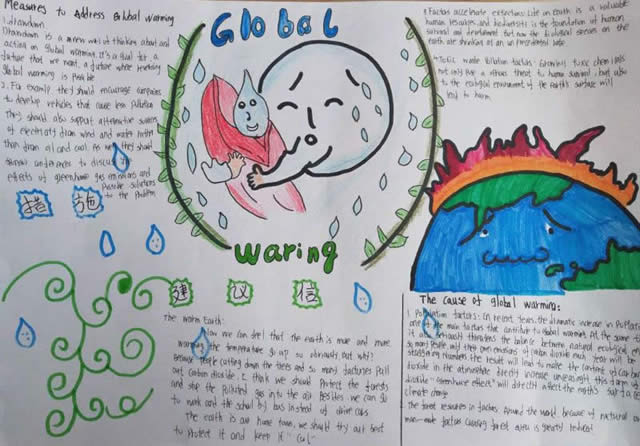 Measures to Address Global Warming
1. drawdown
Drawdown is a new way of thinking about and
acting on global warming. It's a goal for a
future that we want, a future where reversing
global warming is possible
2. For example they should encourage companies
to develop vehicles that cause less pollution
They should also support alternative sources
of electricity from wind and water rather
than from oil and coal. As we they should
support conferences to discuss the
effects of greenhouse gas emissions and
provide solutions
to the problem
措 施
Global
Waring
建 议 信
The warm Earth:
Now we can feel that the earth is more and more
warming the temperature go up so obviously but why?
Because people cutting down the trees and so many factories Pull
out carbon dioxide. I think we should Protect the forests
and stop the Polluted gas into the air. Besides we can go
to work and the school by bus instead of drive cars
The earth is our home town, we should try out best
to Protect it and keep it "Cool"
Factors accelerate extinction: Life on Earth is a valuable
human resources and biodiversity is the foundation of human
survival and development. But now the biological species on the
earth are shrinking at an unprecedented rate
Toxic waste pollution factors: Growing toxic chemicals
not only pose a serious threat to human survival, but also
to the ecological environment of the earth's surface will
lead to harm.
The Cause of global warming:
1. Population factors: In recent years, the dramatic increase in Population
one of the main factors that contribute to global warming. At the same time
it also seriously threatens the balance between natural ecological
So many People, will their own emissions of carbon dioxide each year will be
staggering numbers the result will lead to make the content of carbon
dioxide in the atmosphere directly increase unceasingly, this form
dioxide "greenhouse effect" will directly affect the earth's surface
climate change
The forest resources in factors. Around the world because of natural or
man-made factors causing forest area is greatly reduced